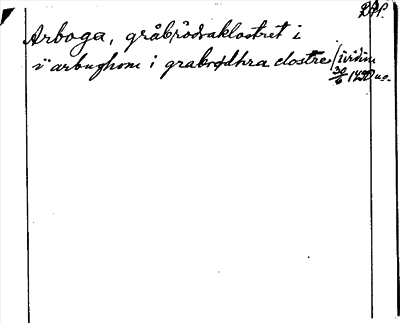 Arboga, gråbrödraklostret i
i arbughom i grabrødhra clostre
30/6 1420